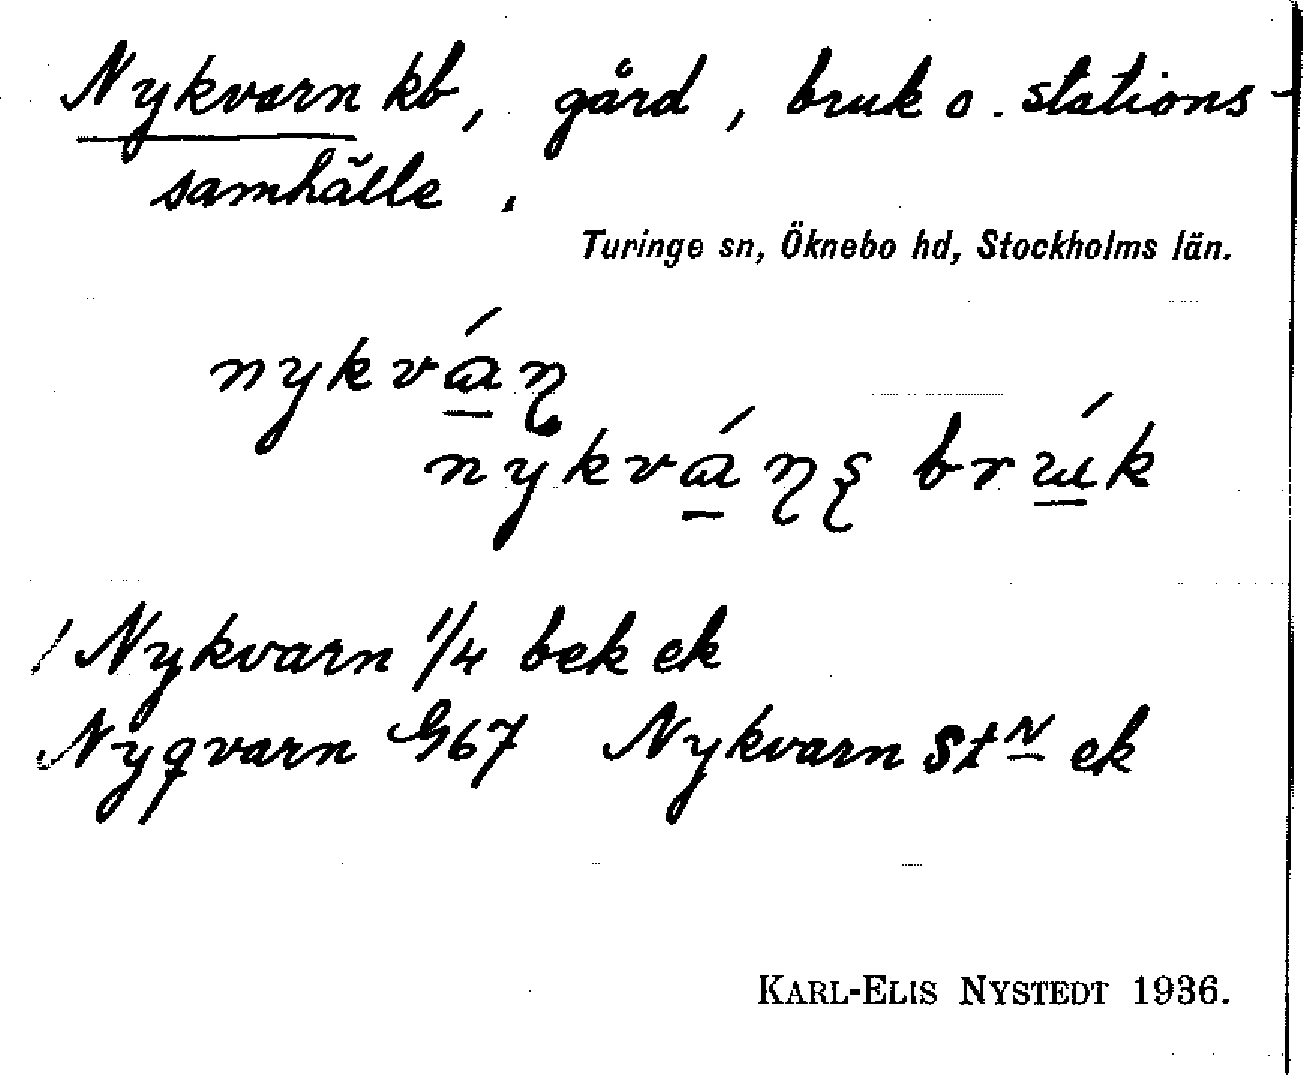 Nykvarn kb, gård, bruk o. stations-
samhälle.
Turinge sn, Öknebo hd, Stockholms län.
nykvá̱ɳ
nykvá̱ɳʂ brú̱k
/ Nykvarn 1/4 bek ek
Nyqvarn G67 Nykvarn Stn ek
KARL-ELIS NYSTEDT 1936.